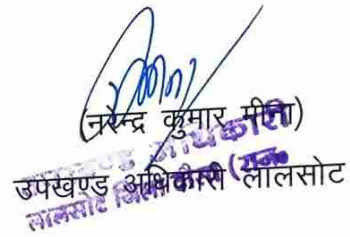 (नरेन्द्र कुमार मीना)
उपखण्ड अधिकारी लालसोट
उपखण्ड अधिकारी
लालसोट जिला दौसा (राज०